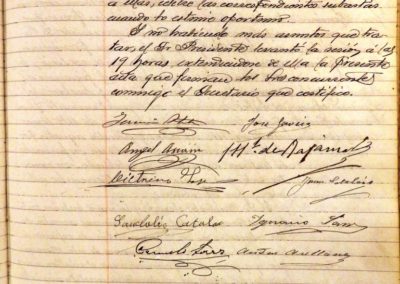 a ellas, celebre las correspondientes subastas
cuando lo estime oportuno.
Y no habiendo más asuntos que tra-
tar, el Sr. Presidente levantó la sesión a las
19 horas, extendiéndose de ella la presente
acta que firman los Srs concurrentes
conmigo el Secretario que certifico.
José Javier
Angel
de
Sandalio Catalan Ignacio
Arellano